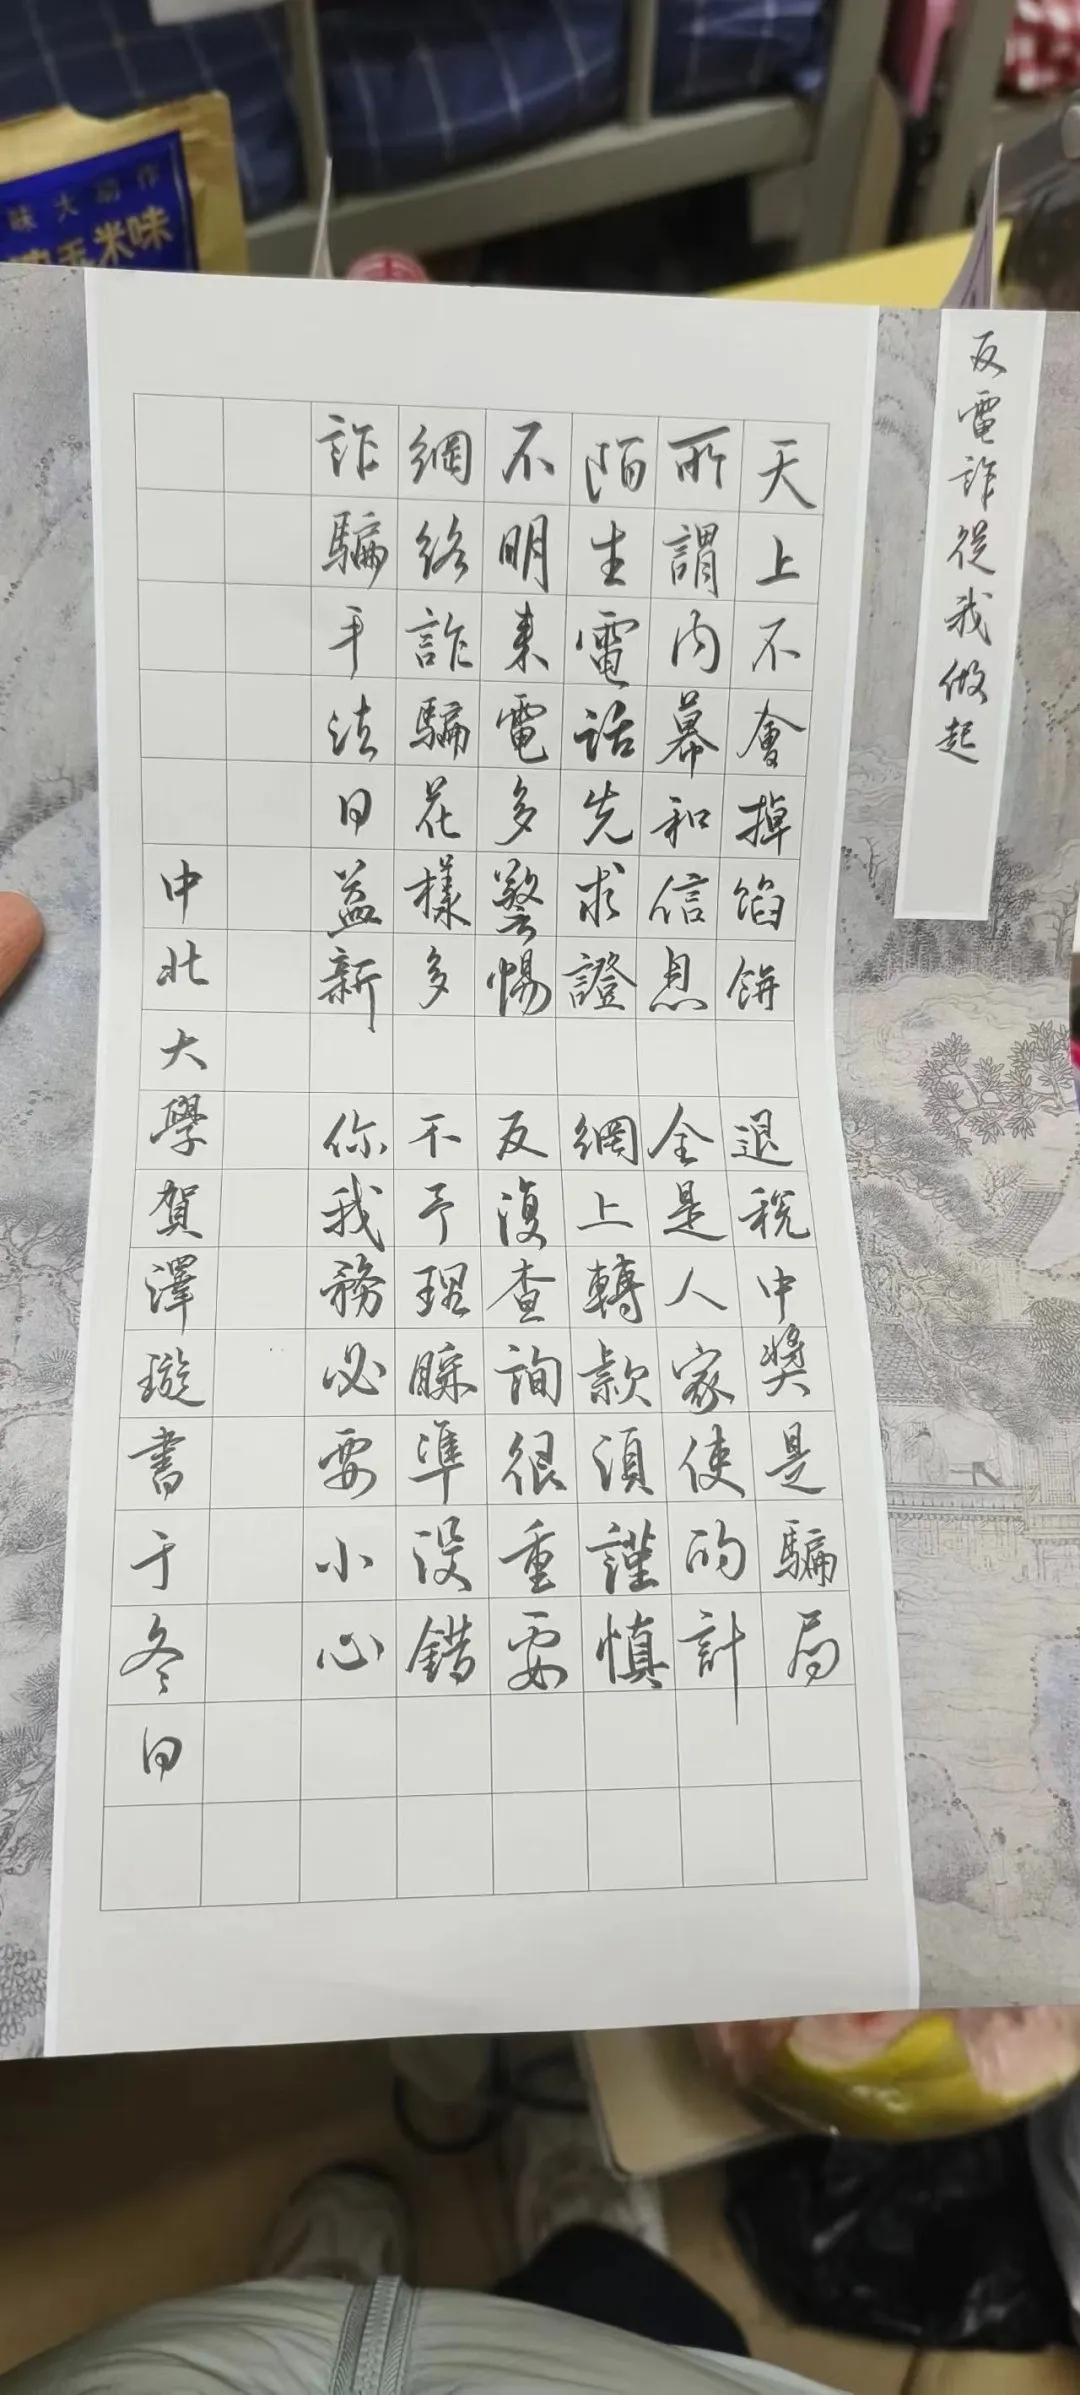 反電詐從我做起
天上不會掉餡餅 退稅中獎是騙局
所謂内幕和信息 全是人家使的計
陌生電話先求證 網上轉款須謹慎
不明来電多警惕 反復查詢很重要
網絡詐騙花樣多 不予理睬準没錯
詐騙手法日益新 你我務必要小心
中北大學賀澤璇書于冬日
味大动作
玉米味